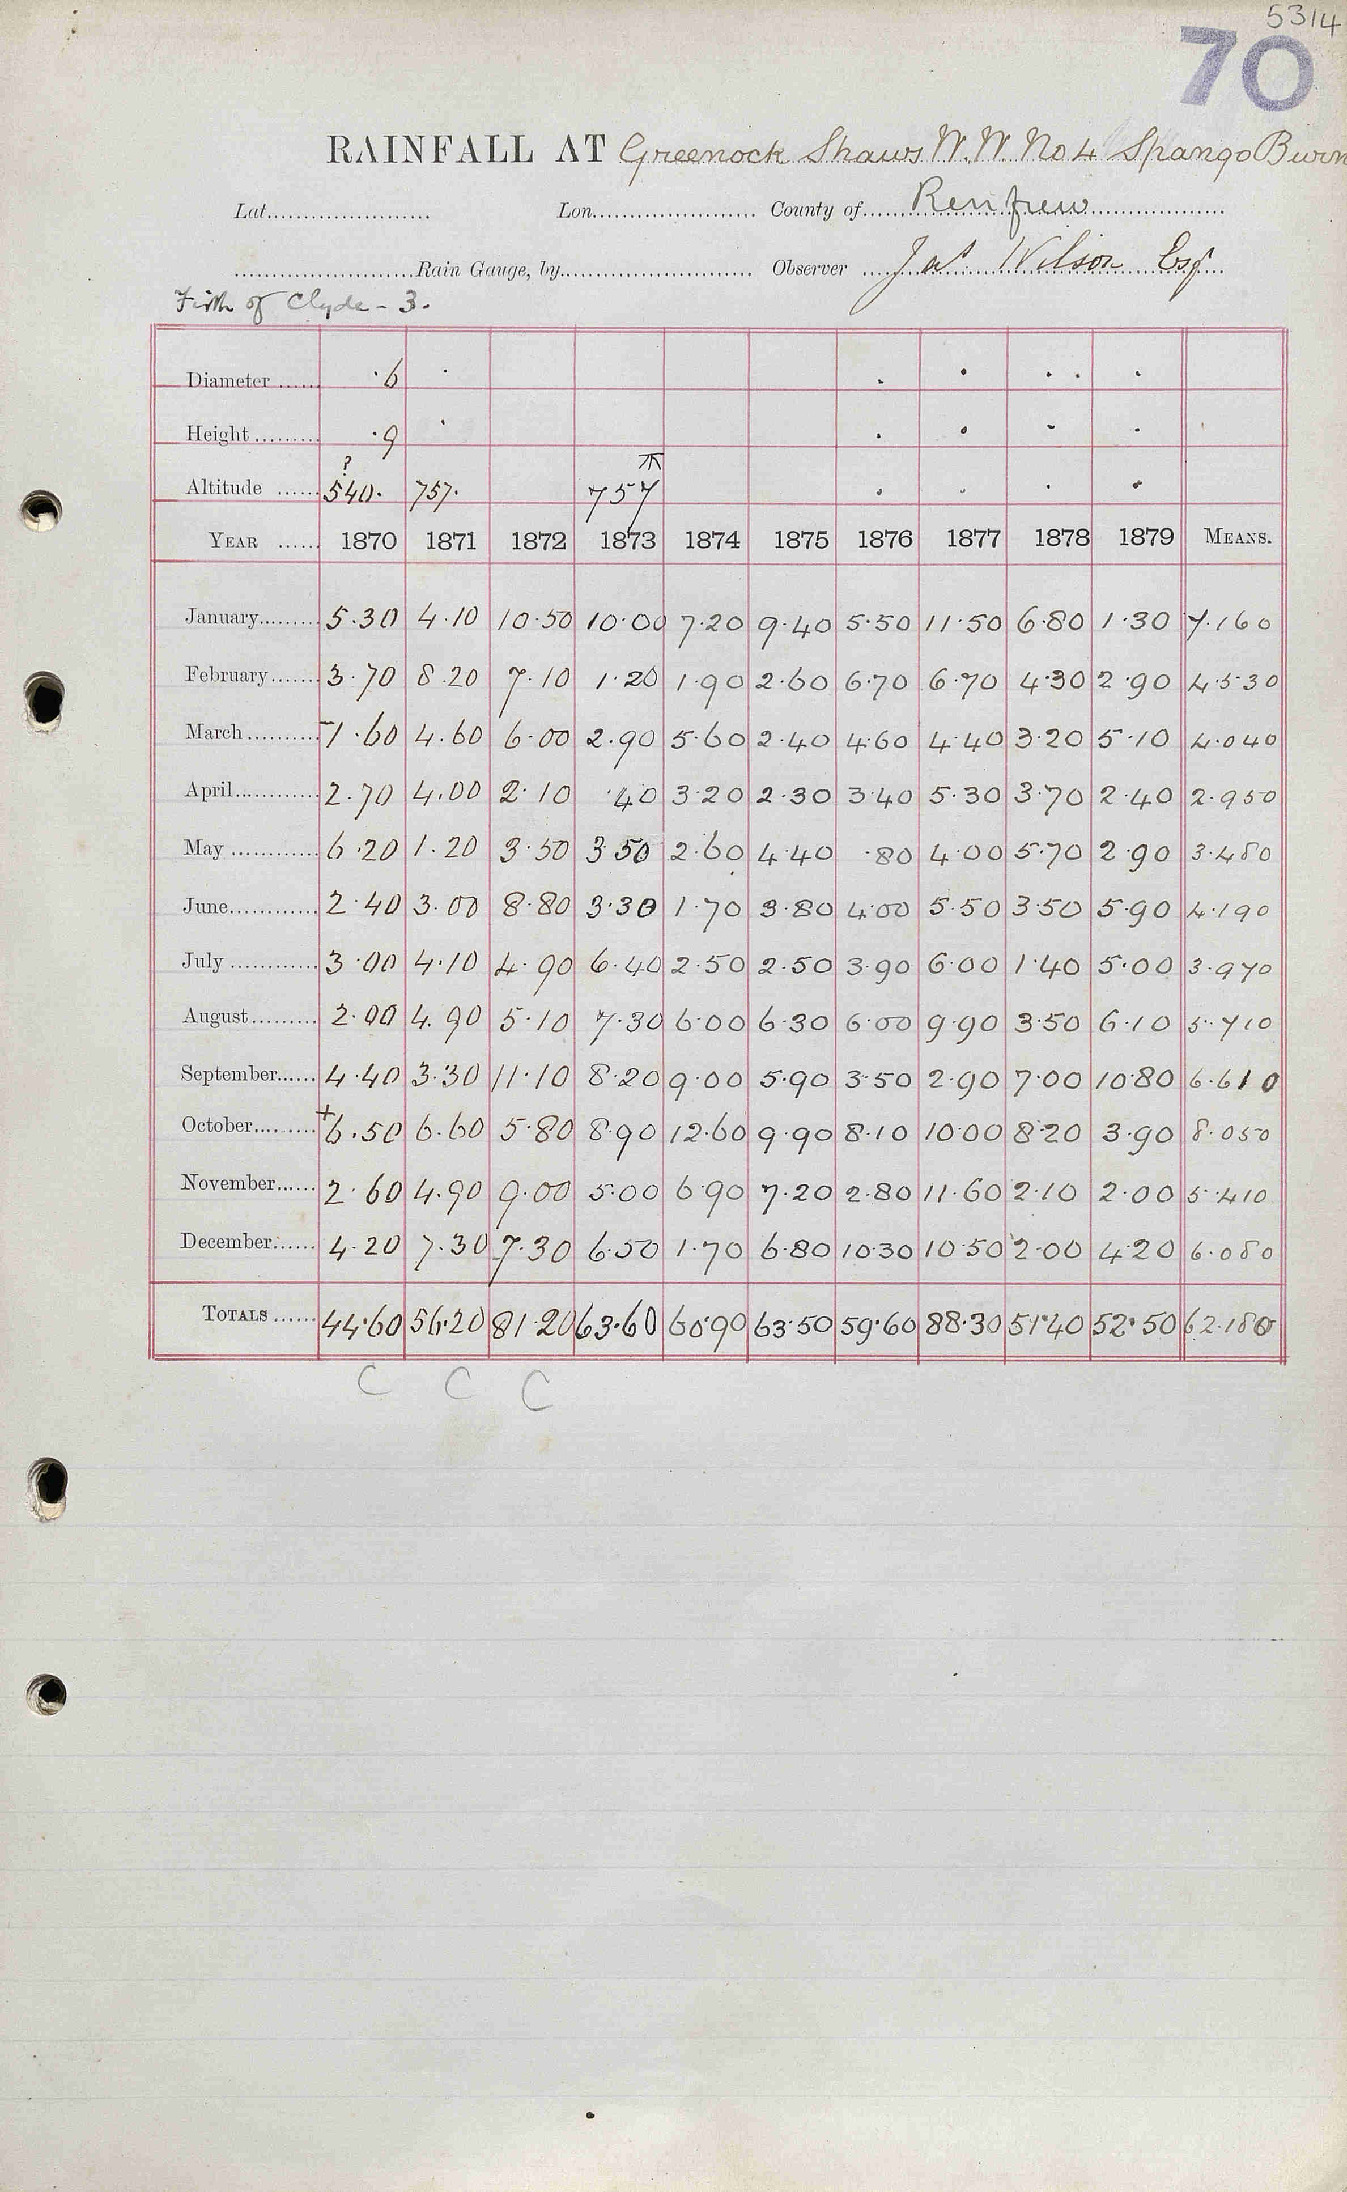 5314
70
RAINFALL AT Greenock Shaws W.W. No 4 Spango Burn
Lat........................ Lon........................ County of......Renfrew........................
...........................Rain Gauge, by........................... Observer ....Jas Wilson Esq...
Firth of Clyde - 3.
Diameter ...... ·6
Height ......... ·9
?
Altitude ...... 540. 757. 757
YEAR ...... 1870 1871 1872 1873 1874 1875 1876 1877 1878 1879 MEANS.
January......... 5.30 4.10 10.50 10.00 7.20 9.40 5.50 11.50 6.80 1.30 7.160
February...... 3.70 8.20 7.10 1.20 1.90 2.60 6.70 6.70 4.30 2.90 4.530
March.......... 1.60 4.60 6.00 2.90 5.60 2.40 4.60 4.40 3.20 5.10 4.040
April............ 2.70 4.00 2.10 .40 3.20 2.30 3.40 5.30 3.70 2.40 2.950
May ............ 6.20 1.20 3.50 3.50 2.60 4.40 .80 4.00 5.70 2.90 3.480
June............ 2.40 3.00 8.80 3.30 1.70 3.80 4.00 5.50 3.50 5.90 4.190
July ............ 3.00 4.10 4.90 6.40 2.50 2.50 3.90 6.00 1.40 5.00 3.970
August......... 2.00 4.90 5.10 7.30 6.00 6.30 6.00 9.90 3.50 6.10 5.710
September...... 4.40 3.30 11.10 8.20 9.00 5.90 3.50 2.90 7.00 10.80 6.610
October......... +6.50 6.60 5.80 8.90 12.60 9.90 8.10 10.00 8.20 3.90 8.050
November...... 2.60 4.90 9.00 5.00 6.90 7.20 2.80 11.60 2.10 2.00 5.410
December....... 4.20 7.30 7.30 6.50 1.70 6.80 10.30 10.50 2.00 4.20 6.080
TOTALS ...... 44.60 56.20 81.20 63.60 60.90 63.50 59.60 88.30 51.40 52.50 62.180
C C C